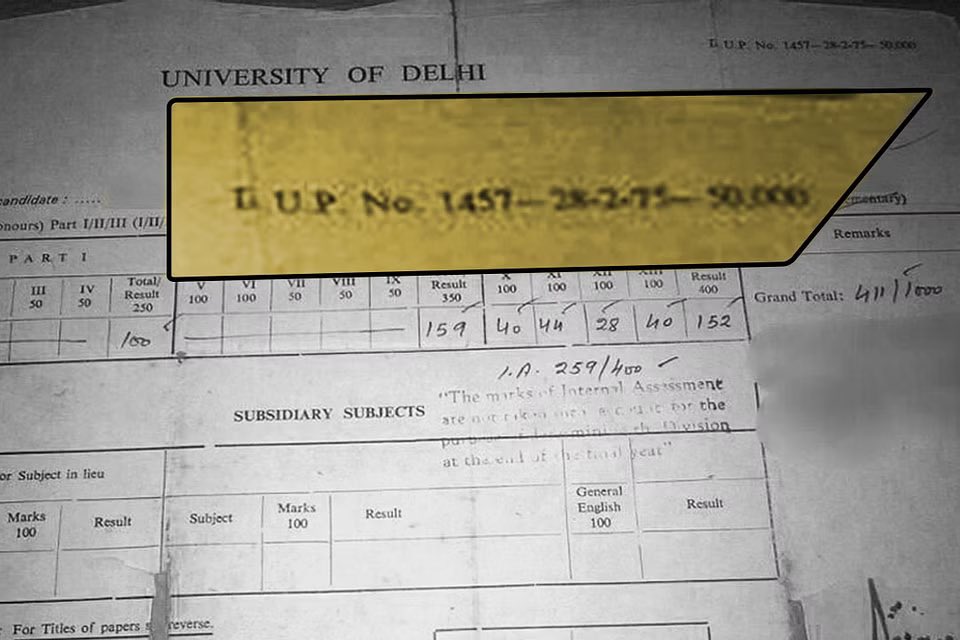 U.P. No. 1457—28-2-75—50,000
UNIVERSITY OF DELHI
U.P. No. 1457—28-2-75—50,000
candidate : .....
onours) Part I/II/III (I/II/
mentary)
PART I
Remarks
III 50 IV 50 Total/Result 250 V 100 VI 100 VII 50 VIII 50 IX 50 Result 350 X 100 XI 100 XII 100 XIII 100 Result 400
Grand Total: 411/1000
100 159 40 44 28 40 152
I.A. 259/400
"The marks of Internal Assessment
are not taken into account for the
purpose of determining the Division
at the end of the final year"
SUBSIDIARY SUBJECTS
or Subject in lieu
Marks 100 Result Subject Marks 100 Result General English 100 Result
For Titles of papers s reverse.